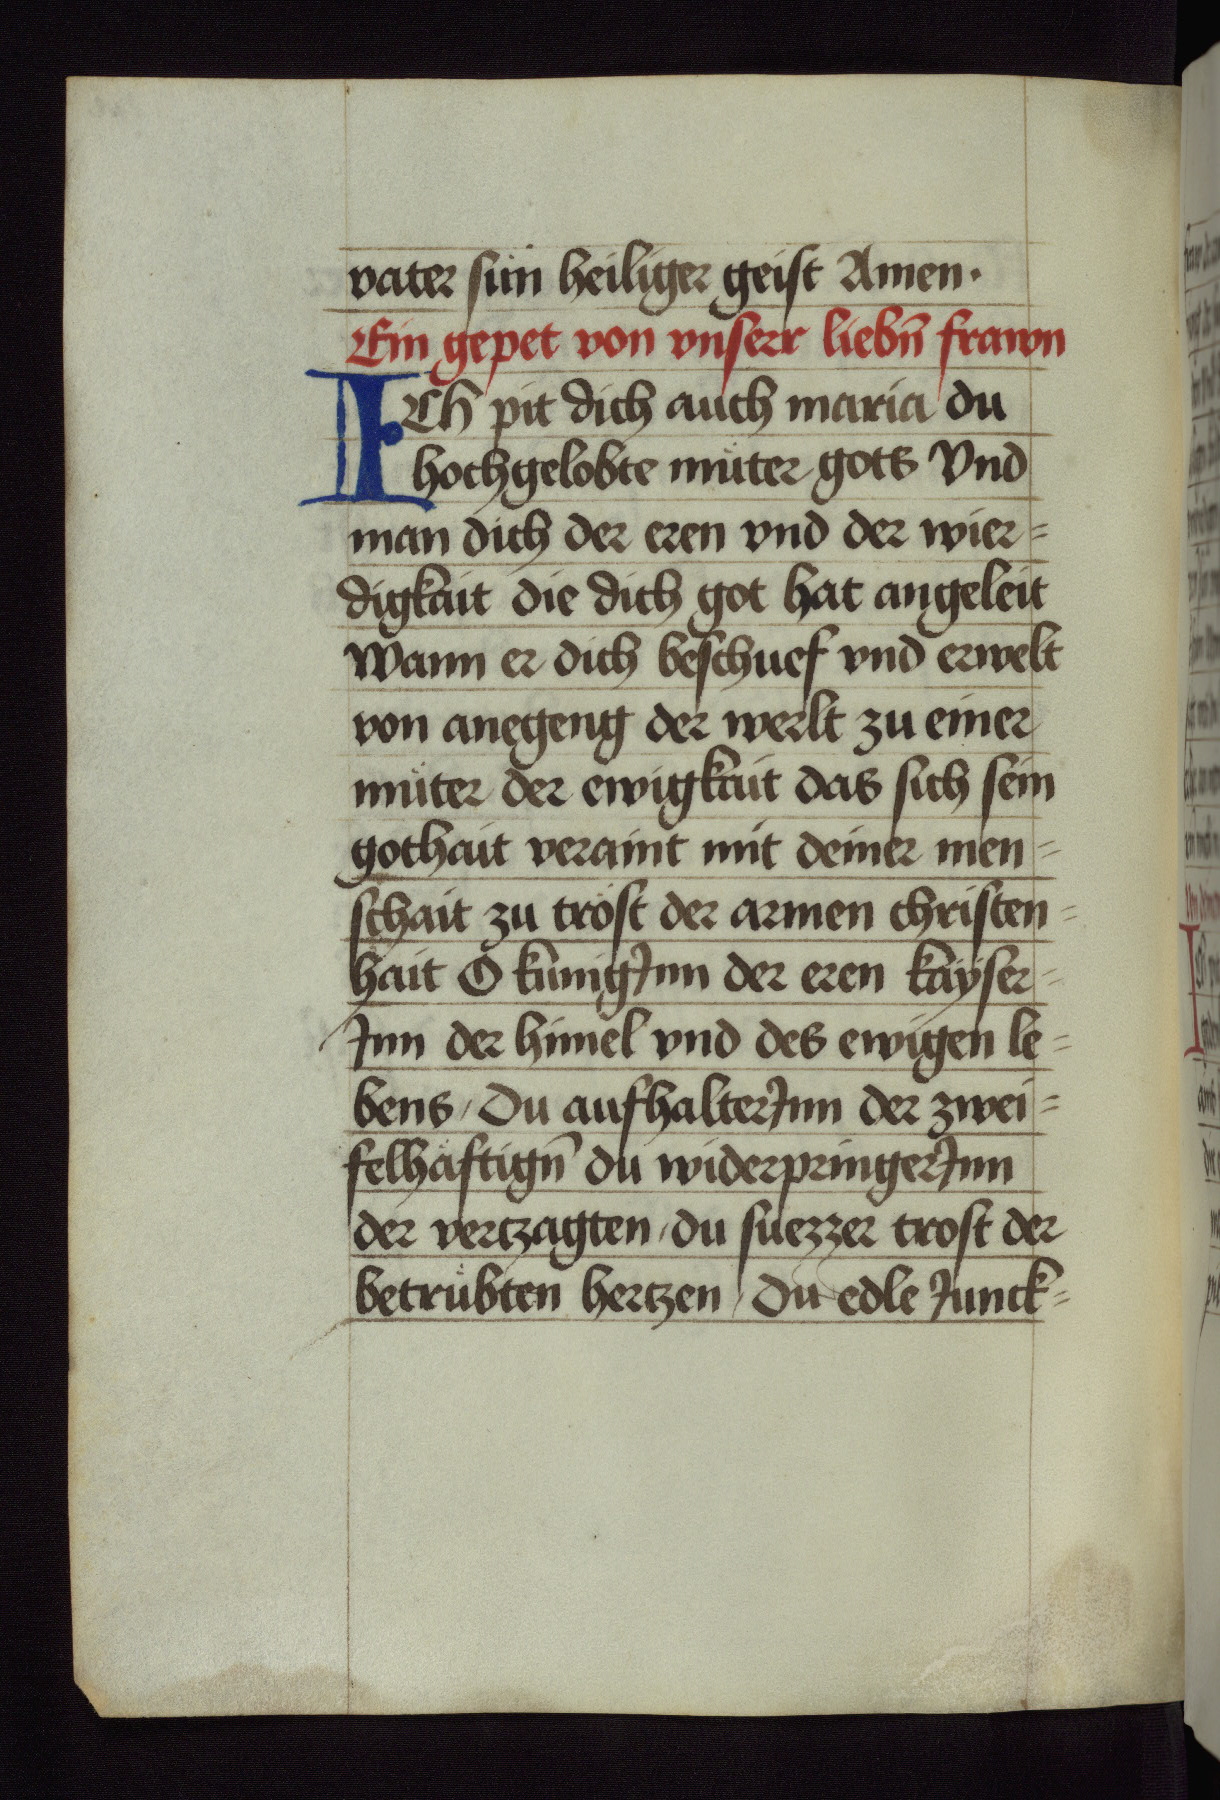 vater sun heiliger geist Amen·
Ein gepet von vnserr liebn̄ frawn
ICh pit dich auch maria du
hochgelobte muͤter gots Vnd
man dich der eren vnd der wier=
digkait die dich got hat angeleit
Wann er dich beschuef vnd erwelt
von anegeng der werlt zu einer
muͤter der ewigkait das sich sein
gothait veraint mit deiner men=
schait zu tröst der armen christen=
hait O kunigJnn der eren kaÿser=
Jnn der himel vnd des ewigen le=
bens, Du aufhalterJnn der zwei=
felhäftign̄ du widerpringerJnn
der vertzagten, du suezzer trost der
betrübten hertzen, Du edle Junck=